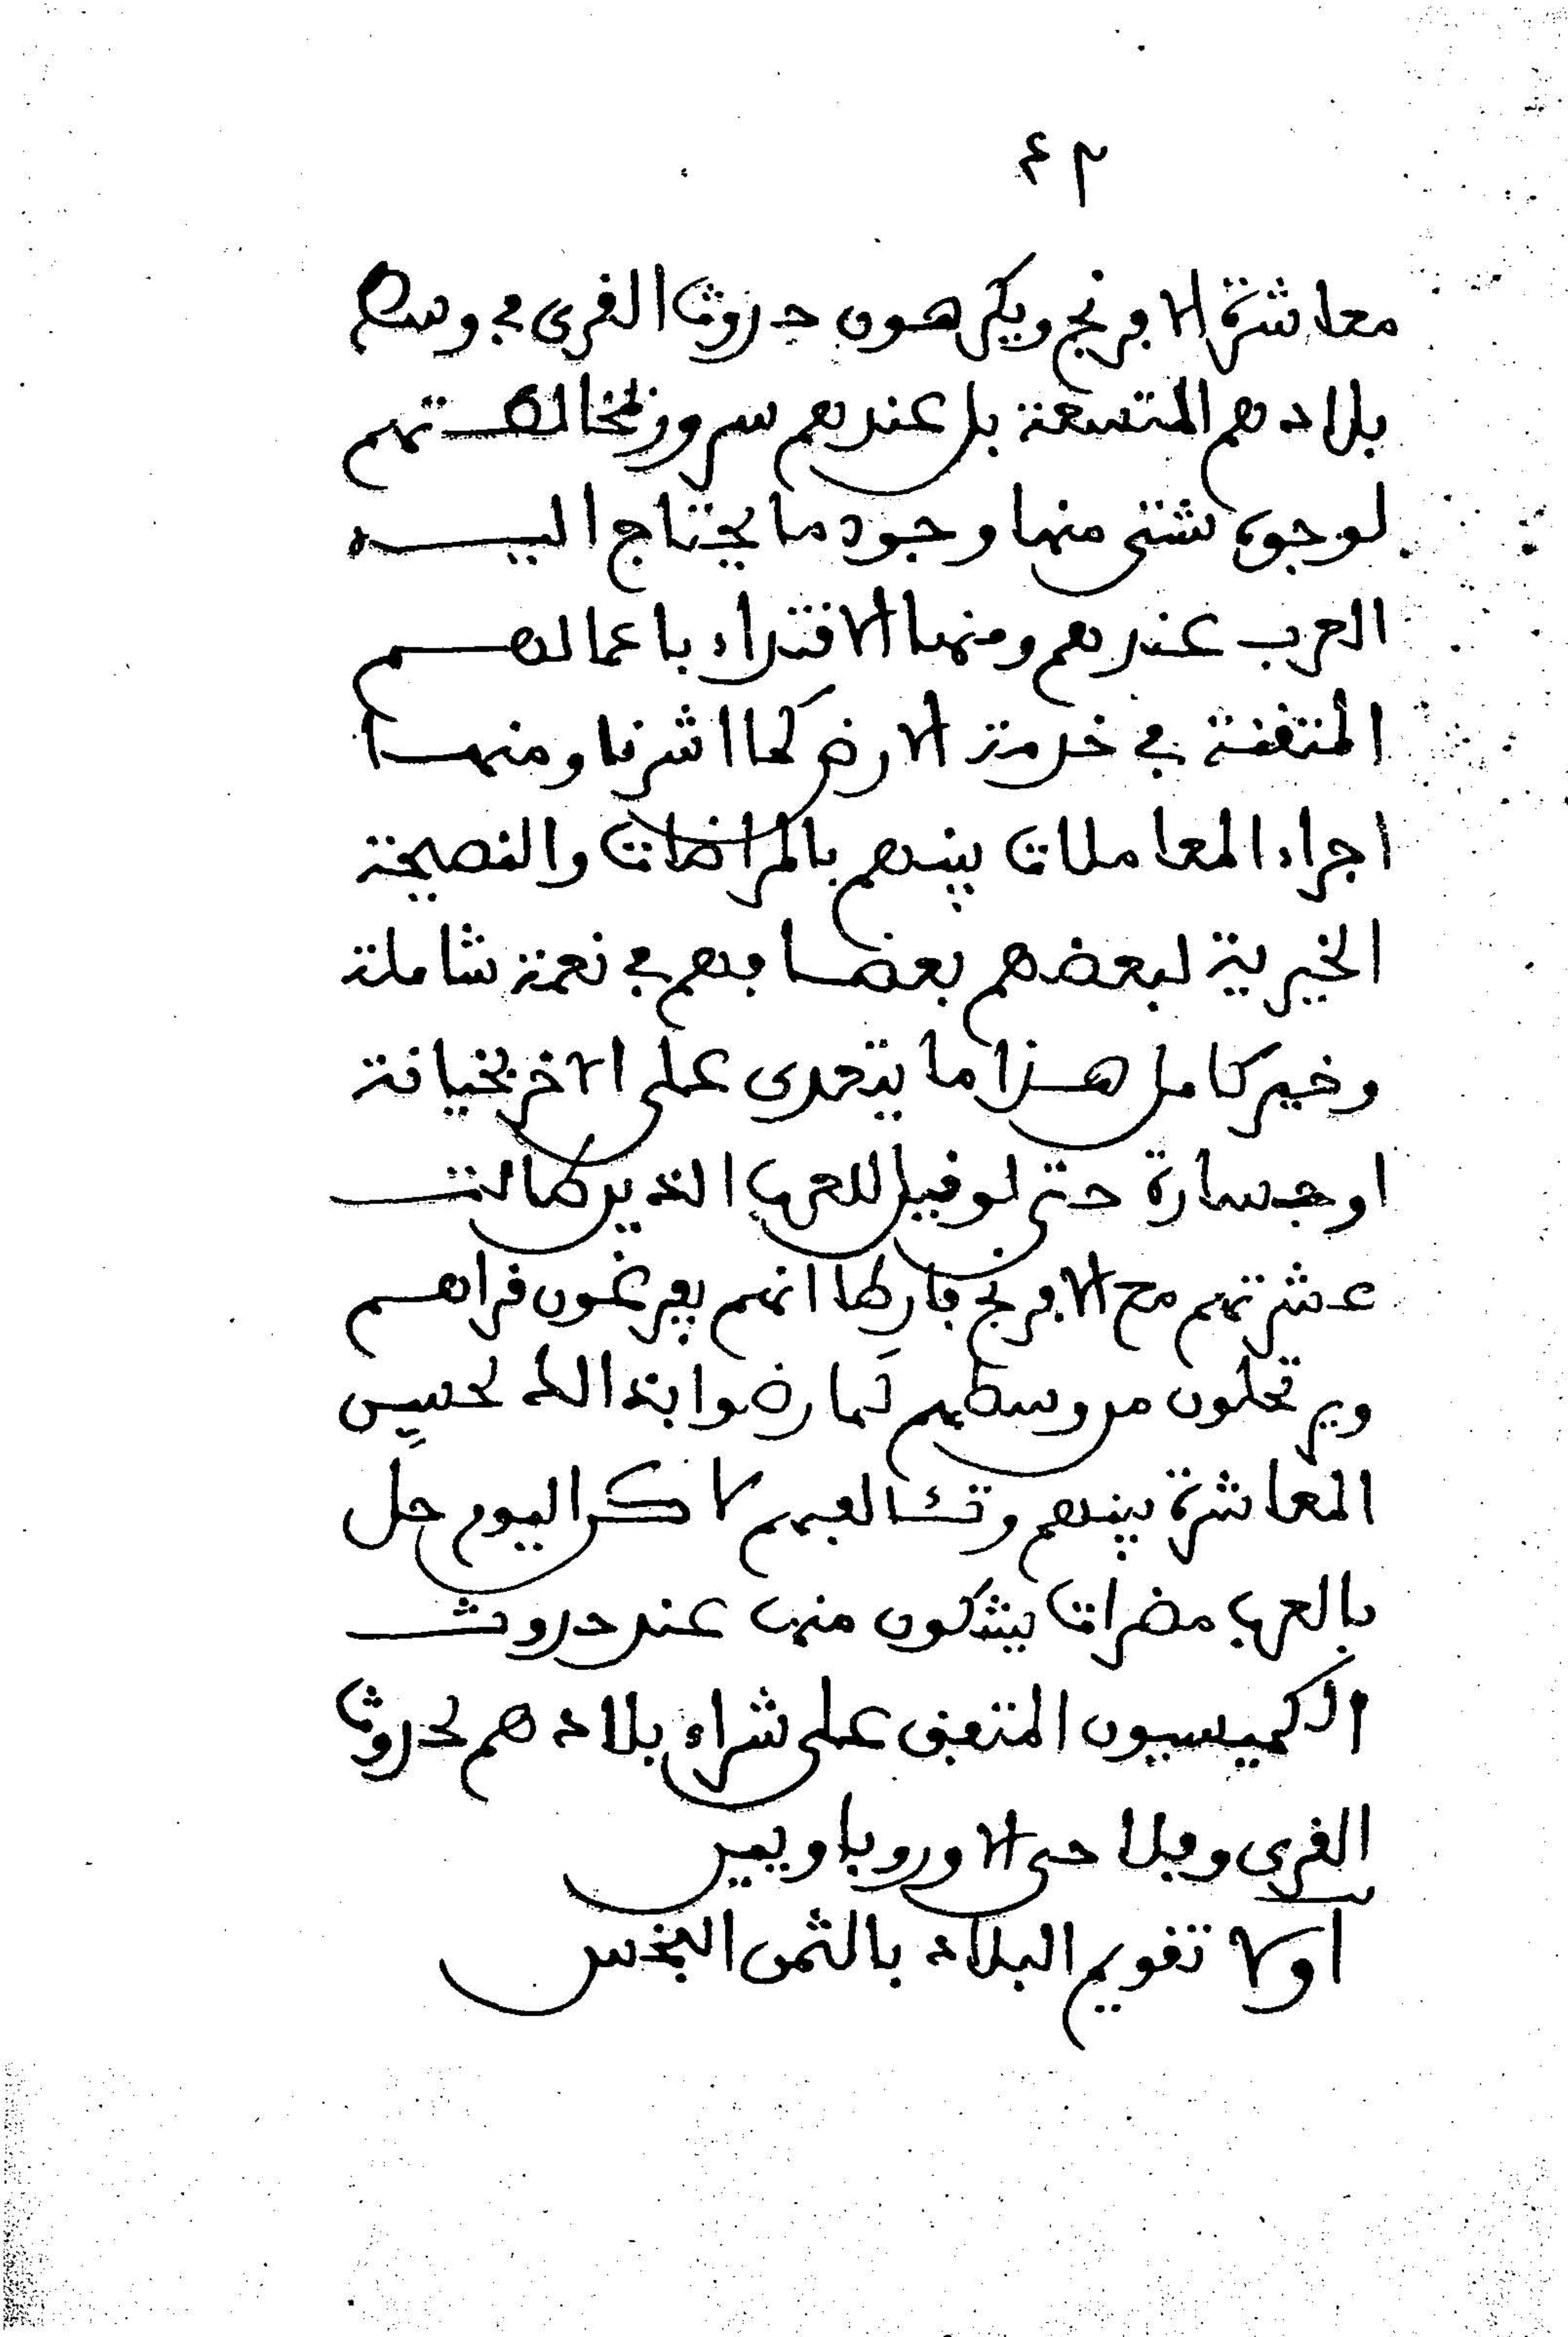 ٤٢
معاشرة الافرنج ويكرهون حدوث القرى في وسط
بلادهم المتسعة بل عندهم سرور لمخالطتهم
لوجوه شتى منها وجود ما يحتاج اليه
العرب عندهم ومنها الاقتداء باعمالهم
المتقنة في خدمة الارض كما اشرنا ومنها
اجراء المعاملات بينهم بالمراضات والنصيحة
الخيرية لبعضهم بعضا فهم في نعمة شاملة
وخير كامل هذا ما يتعدى على الاخر بخيانة
او جسارة حتى لو قيل للعرب الذين طالت
عشرتهم مع الافرنج فارطا انهم يفرغون قراهم
ويرتحلون من وسطهم لما رضوا بذالك لحسن
المعاشرة بينهم وتئالفهم لاكن اليوم حل
بالعرب مضرات يشكون منها عند حدوث
الكميسيون المتفق على شراء بلادهم لحدوث
القرى وفلاحى الاوروباويين
اولا تقويم البلاد بالثمن البخس